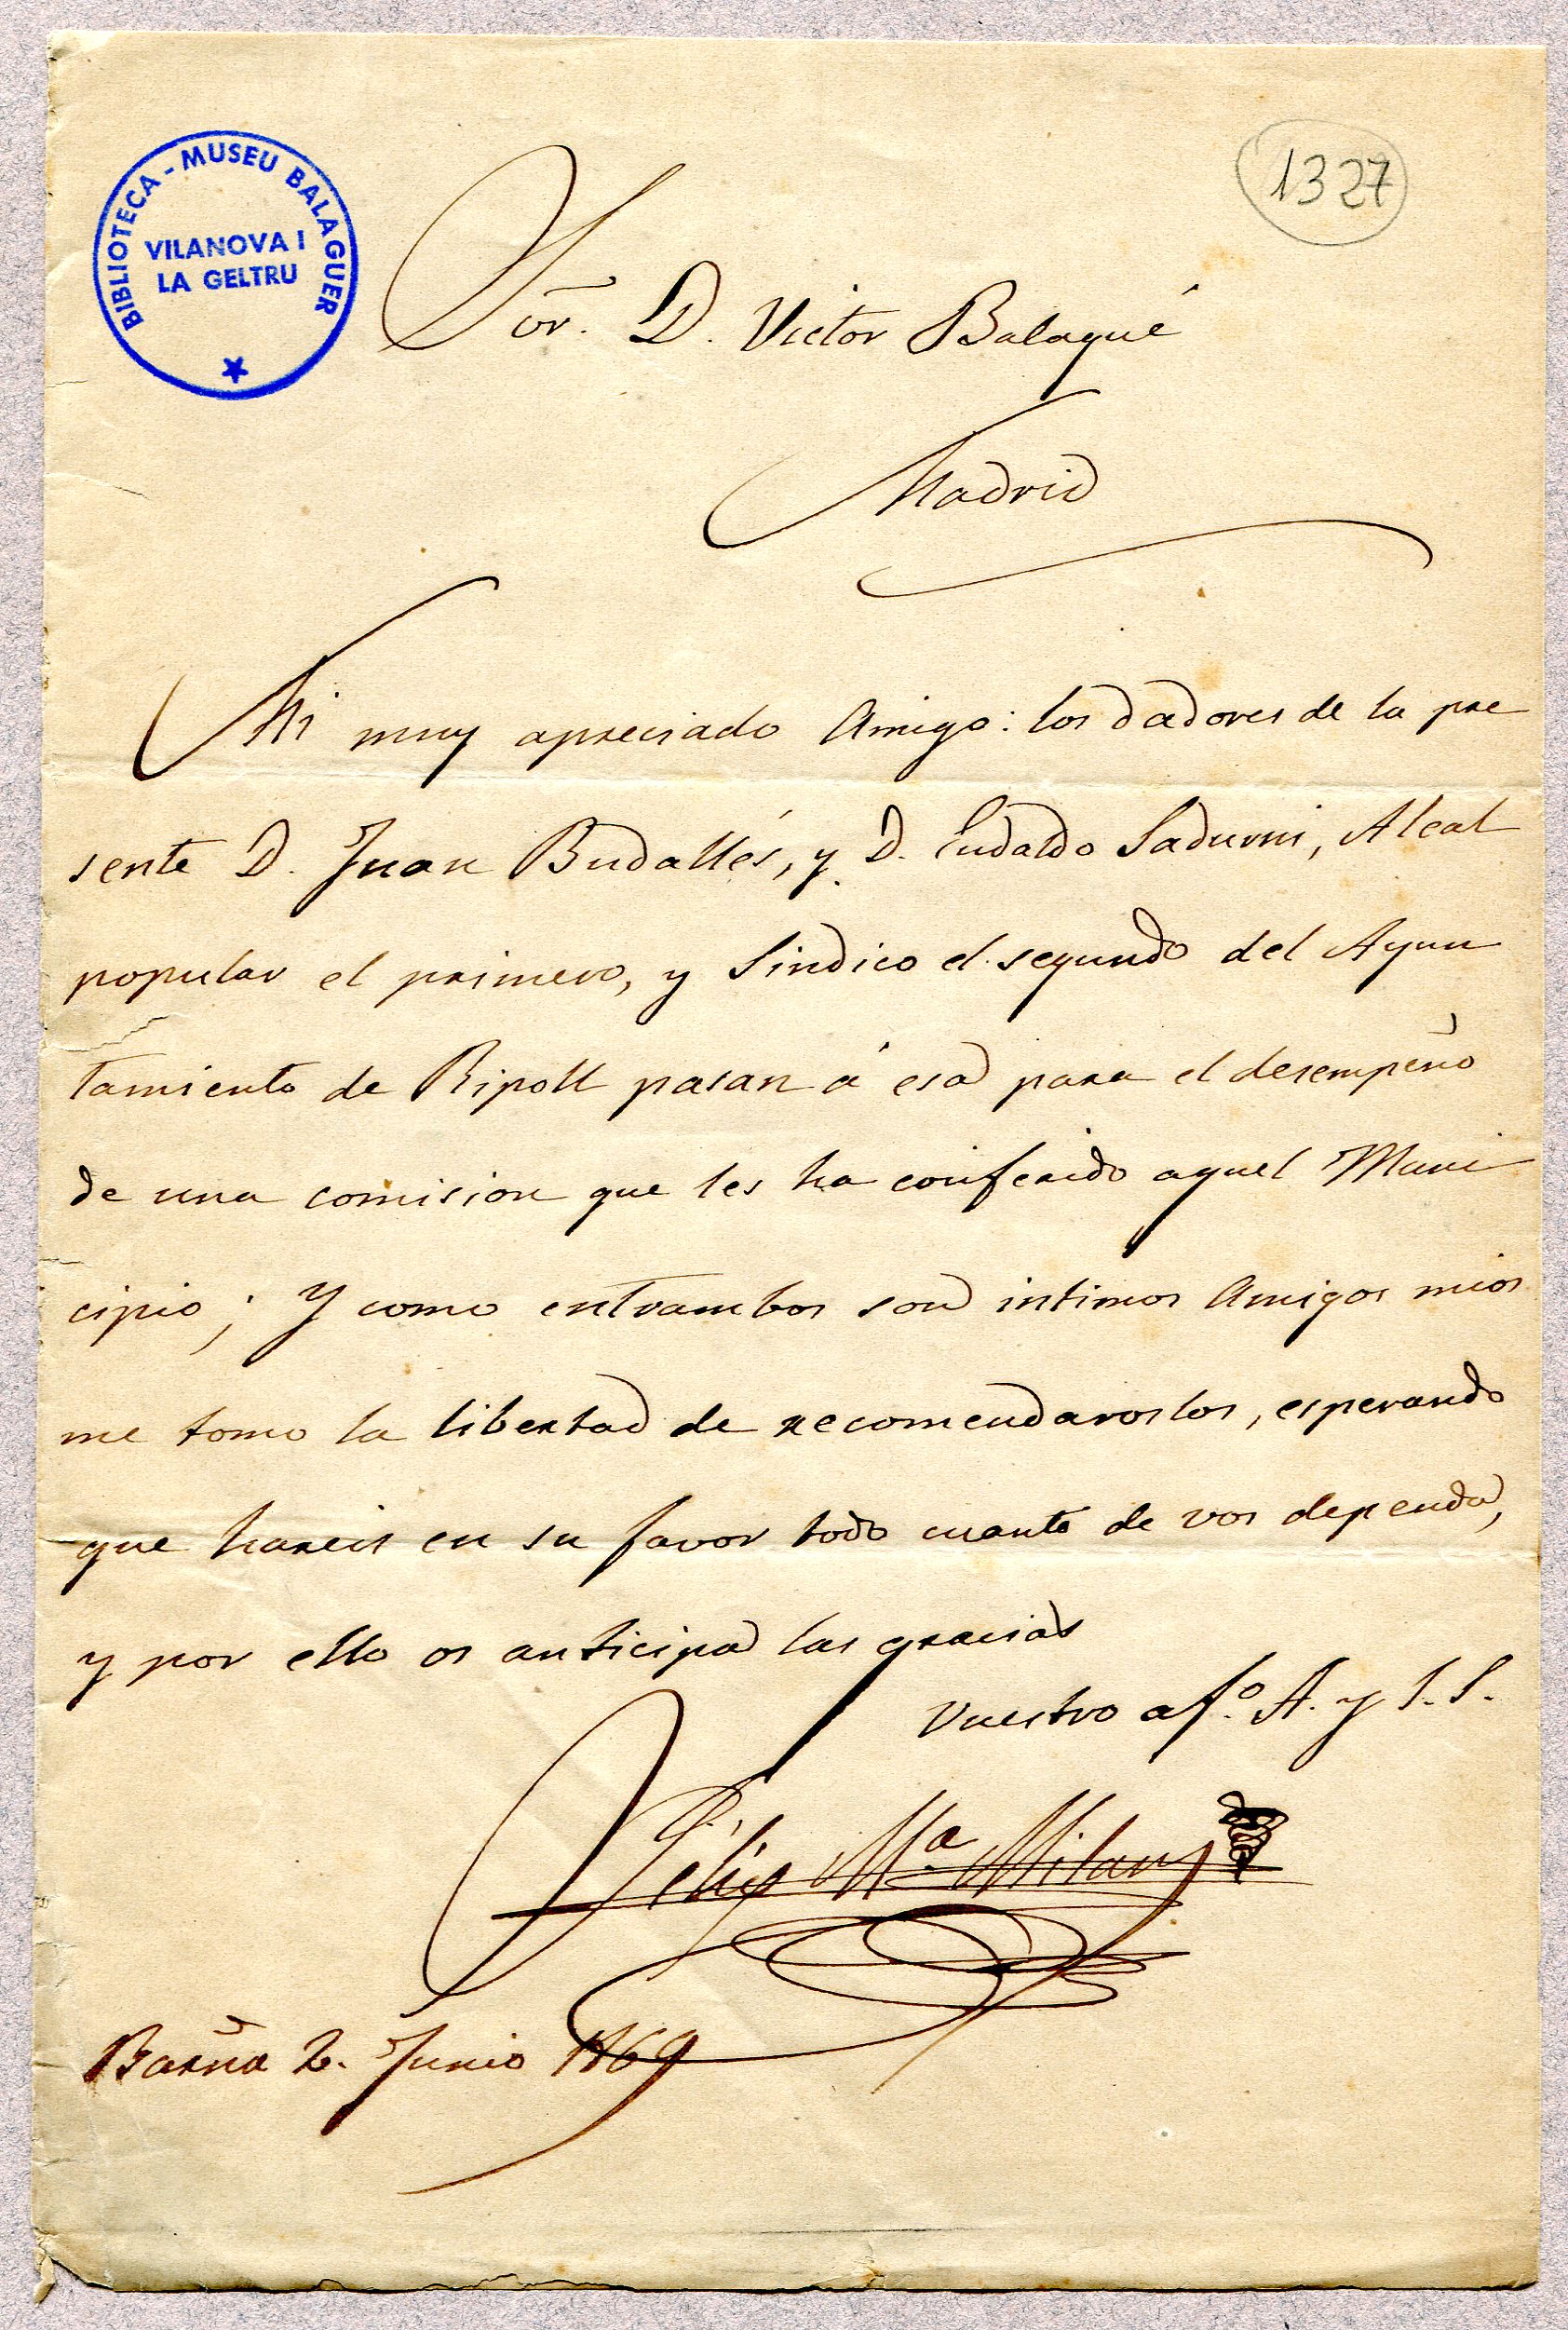 BIBLIOTECA - MUSEU BALAGUER
VILANOVA I
LA GELTRU
1327
Sor. D. Victor Balagué
Madrid
Mi muy apreciado Amigo: los dadores de la pre
sente D. Juan Budallés, y D. Eudaldo Sadurni, Alcal
popular el primero, y Sindico el segundo del Ayun
tamiento de Ripoll pasan á esa para el desempeño
de una comision que les ha conferido aquel Muni
cipio; Y como entrambos son intimos Amigos mios
me tomo la libertad de recomendaroslos, esperando
que hareis en su favor todo cuanto de vos dependa,
y por ello os anticipa las gracias
Vuestro af.º A. y S. S.
Félix Mª Milany
Barña 2. Junio 1869